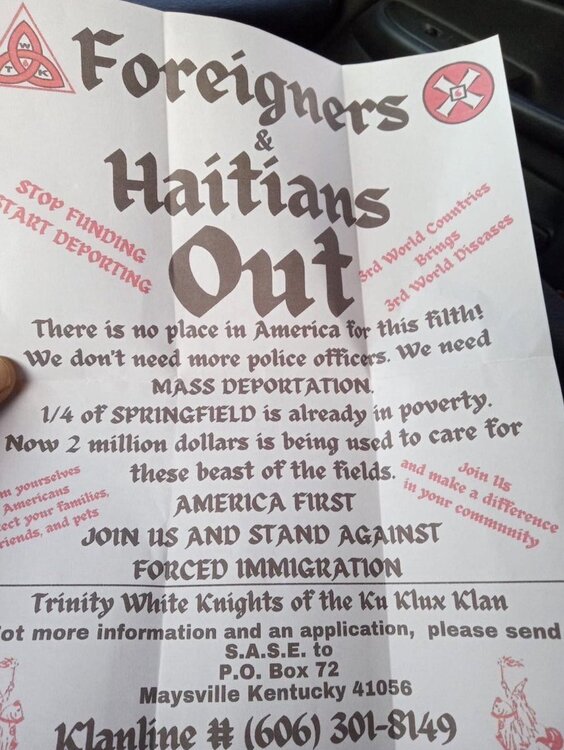 W
T K
Foreigners
&
Haitians
Out
STOP FUNDING
START DEPORTING
3rd World Countries
Brings
3rd World Diseases
There is no place in America for this filth!
We don't need more police officers. We need
MASS DEPORTATION.
1/4 of SPRINGFIELD is already in poverty.
Now 2 million dollars is being used to care for
these beast of the fields.
AMERICA FIRST
JOIN US AND STAND AGAINST
FORCED IMMIGRATION
yourselves
Americans
your families,
and pets
Join Us
and make a difference
in your community
Trinity White Knights of the Ku Klux Klan
more information and an application, please send
S.A.S.E. to
P.O. Box 72
Maysville Kentucky 41056
Klanline # (606) 301-8149